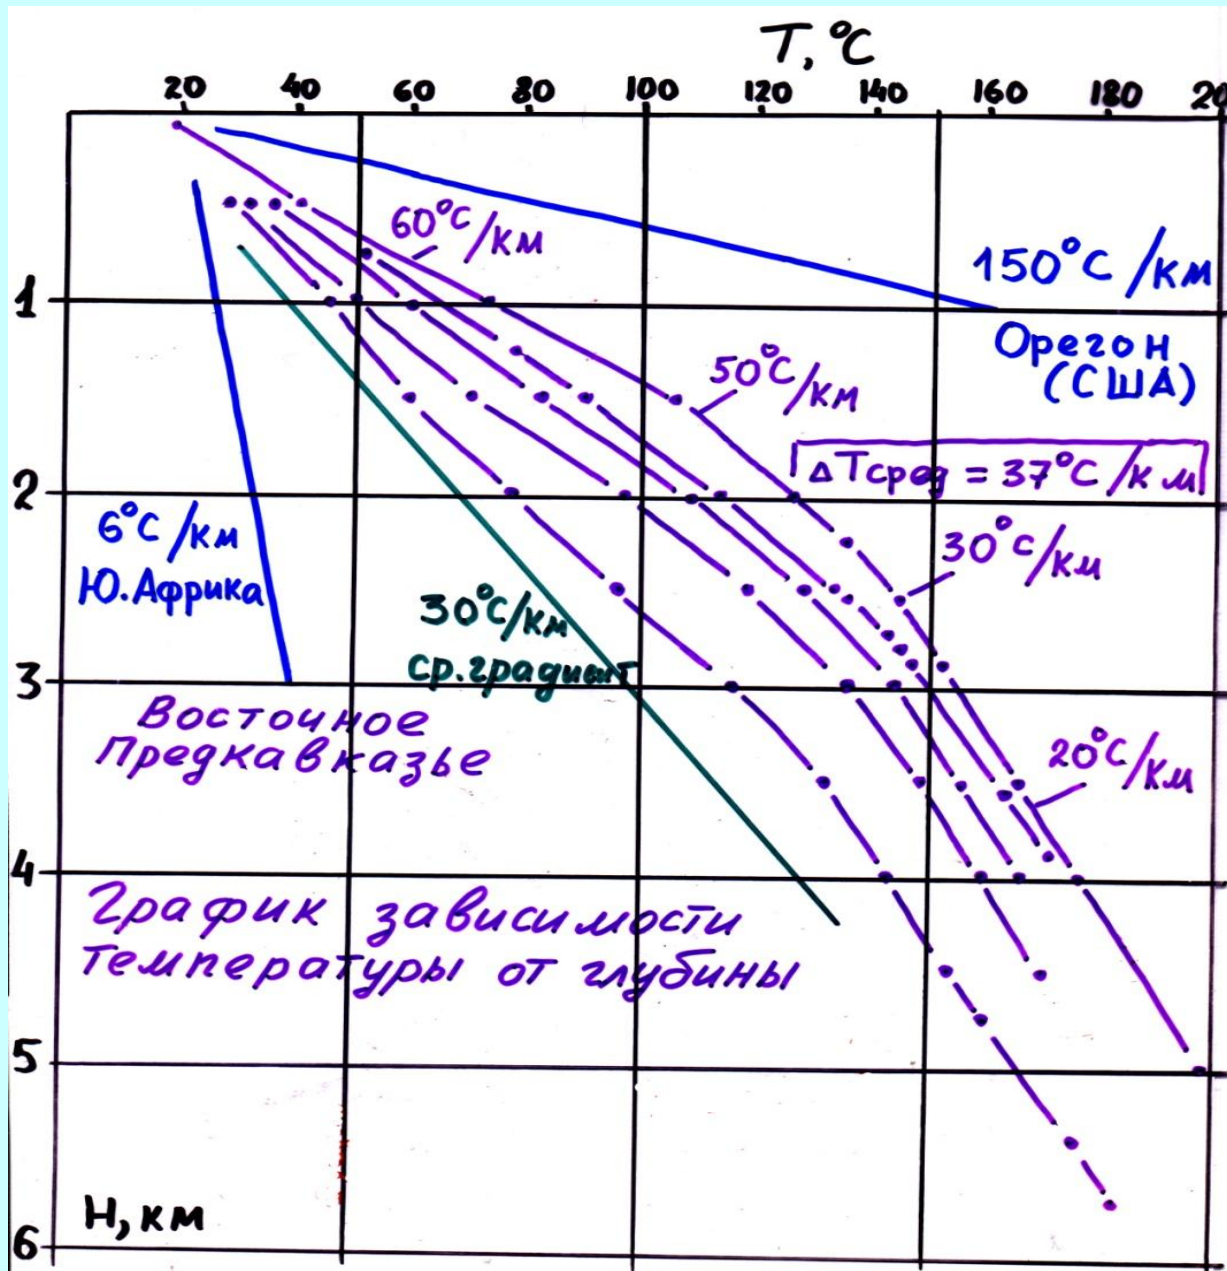 T, °C
20 40 60 80 100 120 140 160 180 20
60°C/км
150°C/км
Орегон
(США)
1
50°C/км
ΔTсред = 37°C/км
2
6°C/км
Ю.Африка
30°C/км
30°C/км
ср.градиент
3
Восточное
Предкавказье
20°C/км
4
График зависимости
температуры от глубины
5
H, км
6